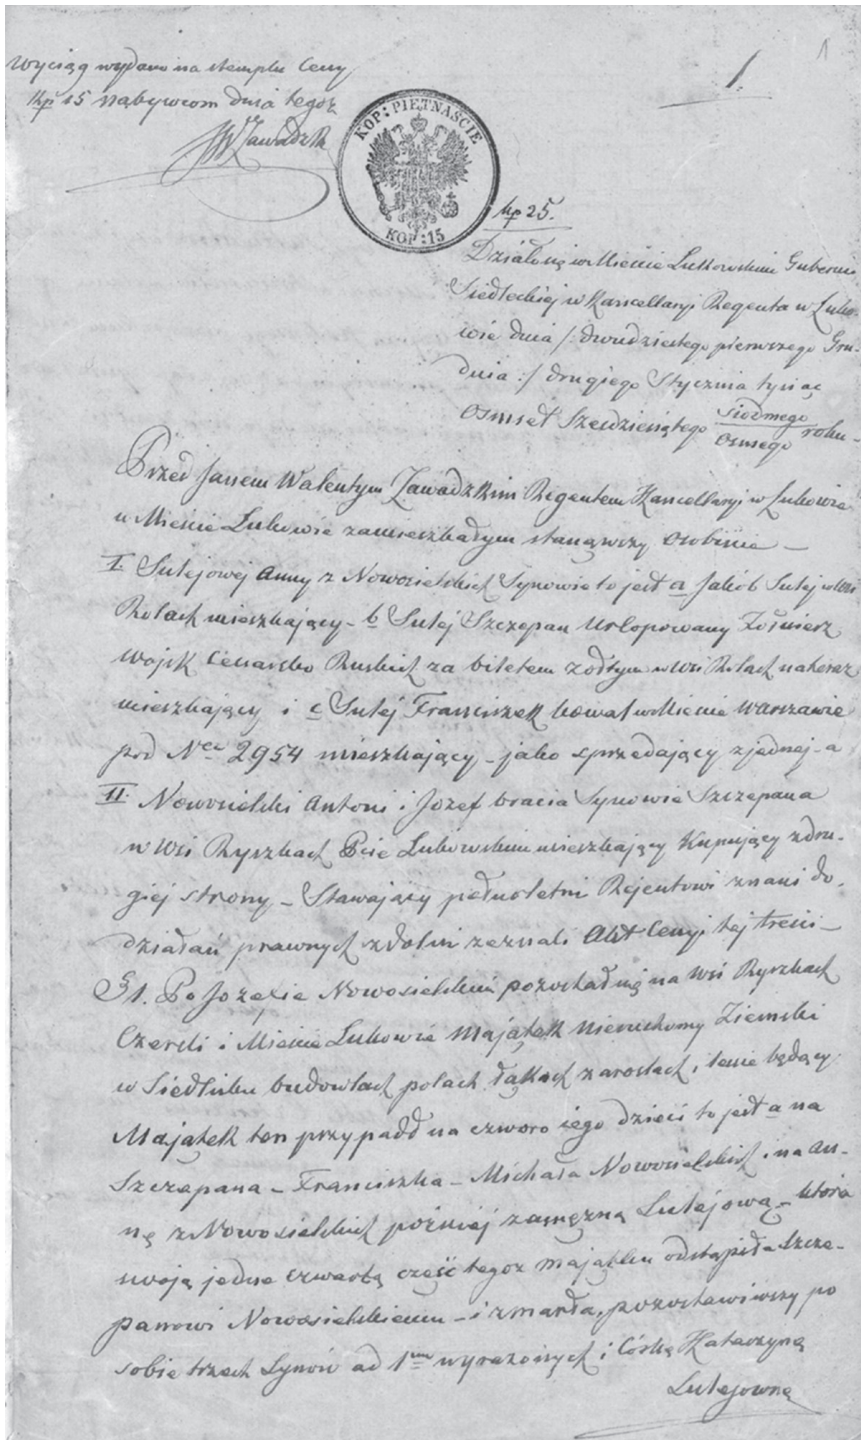 Wyciąg wydano na stemplu Ceny
kp 15 nabywcom dnia tegoż
JWZawadzki
1.
1
KOP: PIĘTNAŚCIE
KOP: 15
kp 25.
Działo się w Mieście Łukowskim Gubernii
Siedleckiej w Kancellaryi Regenta w Łuko-
wie dnia /: dwudziestego pierwszego Gru-
dnia :/ drugiego Stycznia tysiąc
osmset sześdziesiątego siodmego
osmego roku –
Przed Janem Walentym Zawadzkim Regentem Kancellaryi w Łukowie
w Mieście Łukowie zamieszkałym stanąwszy osobiście –
I. Sulejowej Anny z Nowosielskich Synowie to jest a Jakób Sulej w Wsi
Rolach mieszkający – b Sulej Szczepan Urlopowany Żołnierz
Wojsk Cesarsko Ruskich za biletem żółtym w Wsi Rolach
mieszkający i c Sulej Franciszek kowal w Mieście Warszawie
pod Nrem 2954 mieszkający – jako sprzedający z jednej – a
II. Nowosielski Antoni i Jozef bracia Synowie Szczepana
w Wsi Ryszkach Pcie Łukowskim mieszkający Kupujący z dru-
giej strony – Stawający pełnoletni Rejentowi znani do
działań prawnych zdolni zeznali Akt Cessyi tej treści –
§ 1. Po Jozefie Nowosielskim pozostał się na Wsi Ryszkach
Czerśli i Mieście Łukowie Majątek nieruchomy Ziemski
w Siedlisku budowlach polach łąkach zaroślach i lesie będący
Majątek ten przypadł na czworo iego dzieci to jest a na
Szczepana – Franciszka – Michała Nowosielskich i na An-
nę z Nowosielskich poźniej zamęzną Sulejową – która
swoją jedne czwartą część tegoż majątku odstąpiła Szcze-
panowi Nowosielskiemu – i zmarła, pozostawiwszy po
sobie trzech Synów ad 1mum wyrażonych i Córkę Katarzynę
Sulejowną